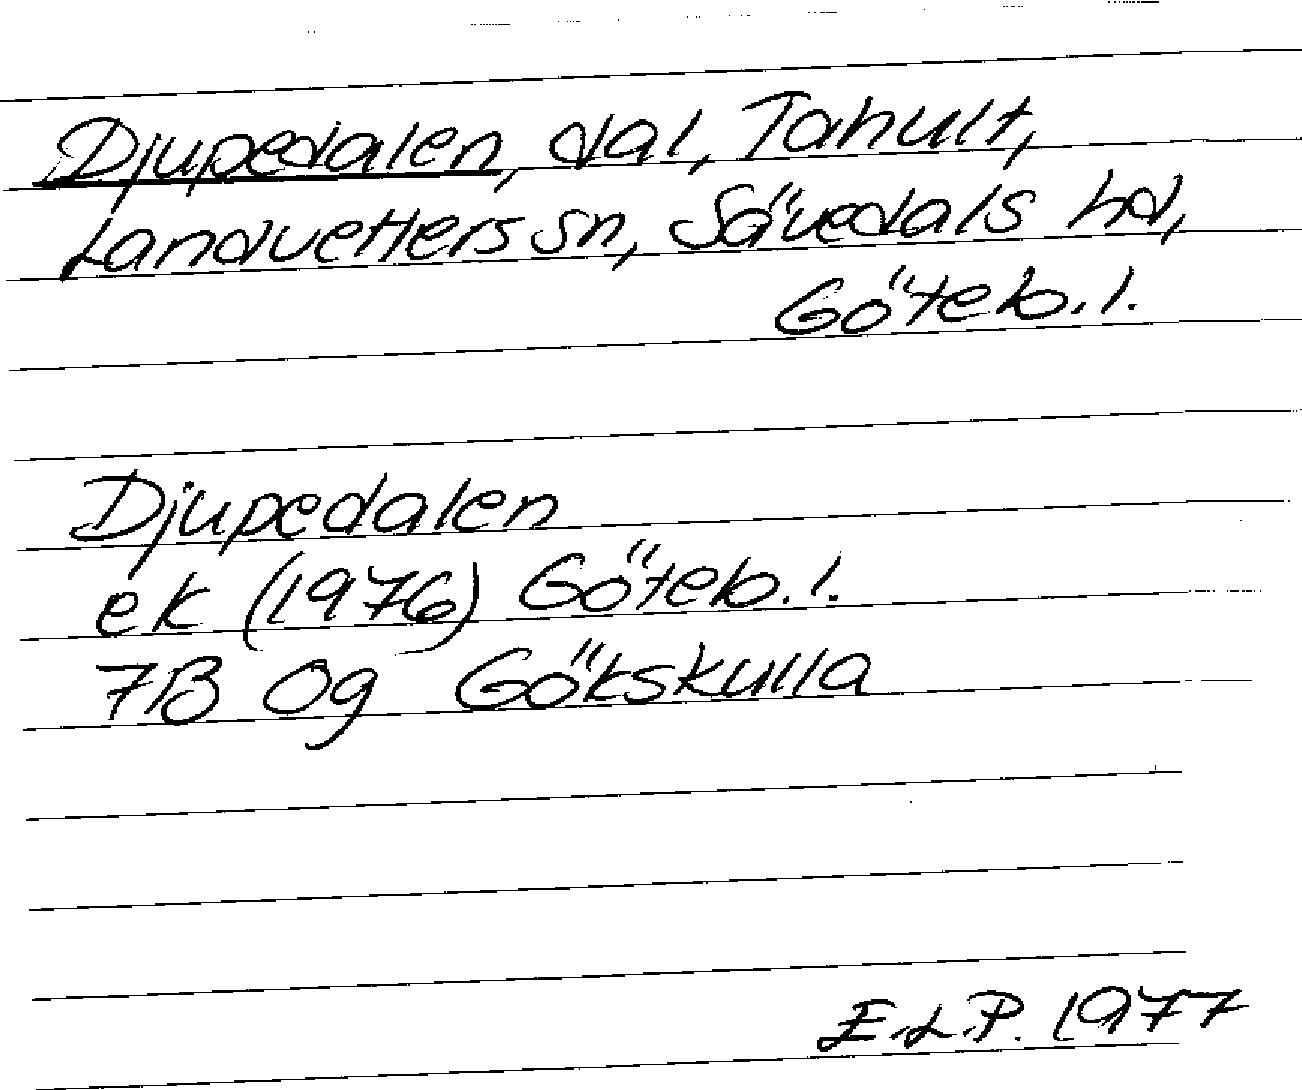 Djupedalen, dal, Tahult,
Landvetters sn, Sävedals hd,
Göteb. l.
Djupedalen
ek (1976) Göteb. l.
7B 0g Gökskulla
E.L.P. 1977